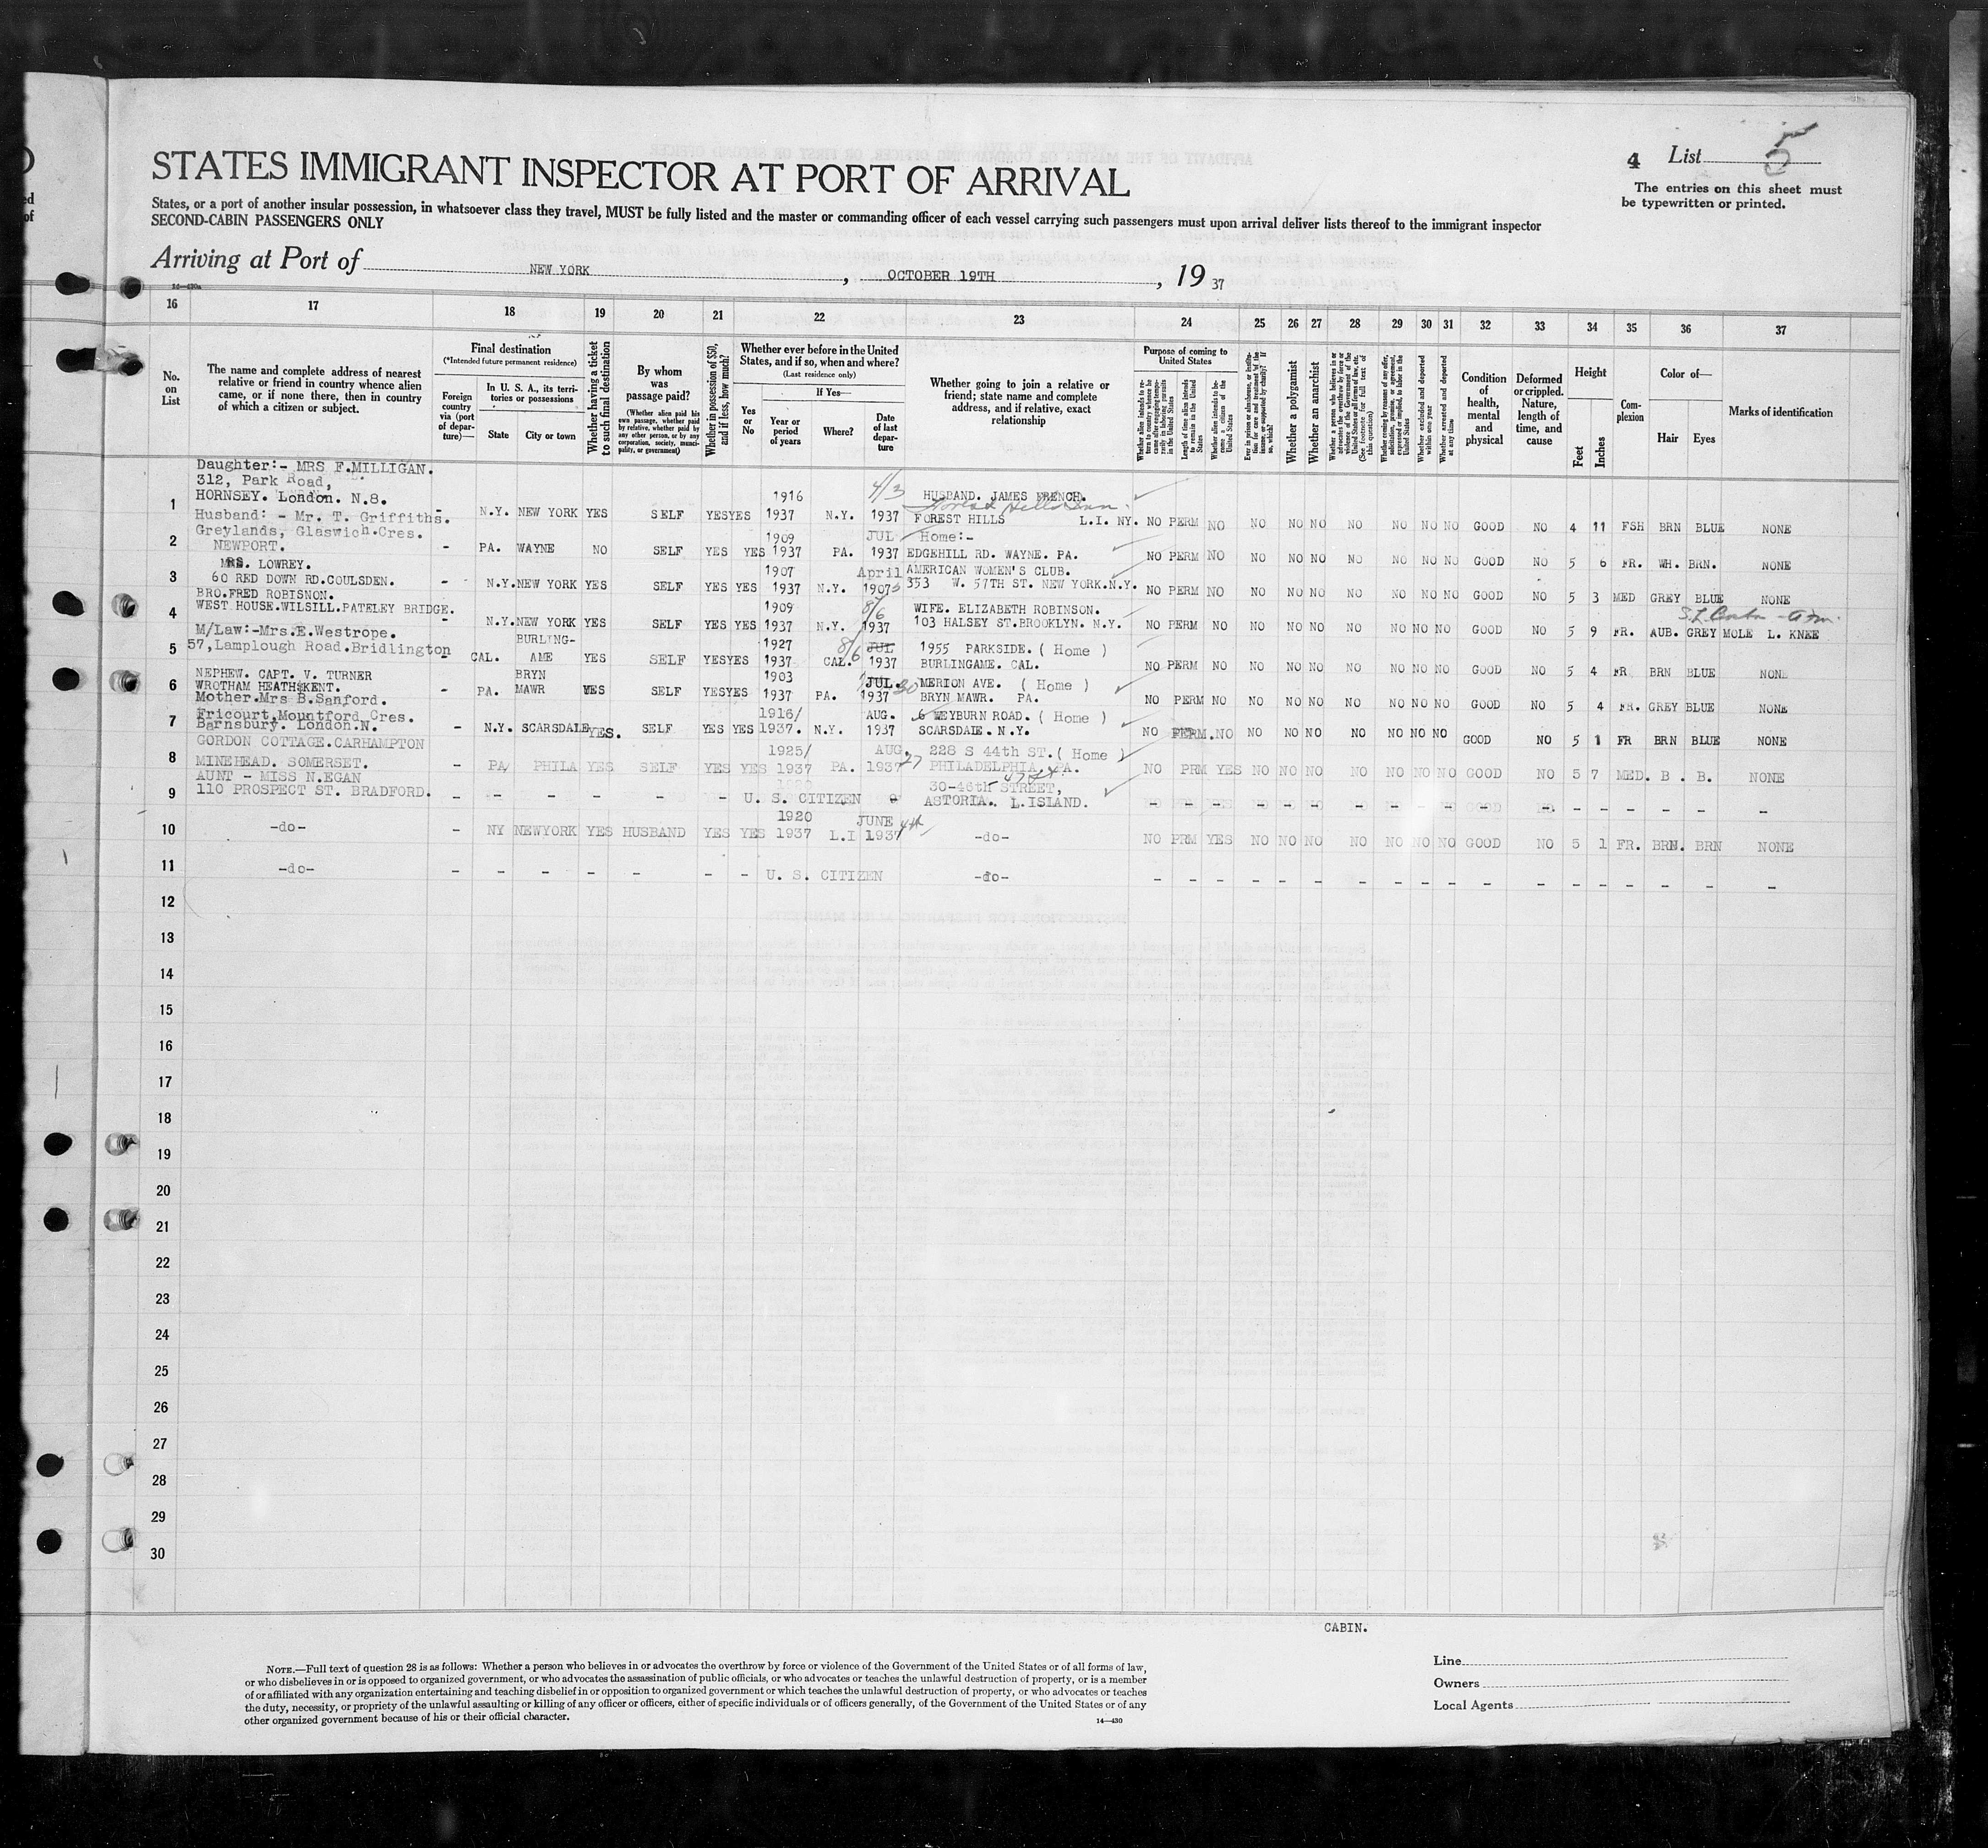 STATES IMMIGRANT INSPECTOR AT PORT OF ARRIVAL
4 List 5
The entries on this sheet must
be typewritten or printed.
States, or a port of another insular possession, in whatsoever class they travel, MUST be fully listed and the master or commanding officer of each vessel carrying such passengers must upon arrival deliver lists thereof to the immigrant inspector
SECOND-CABIN PASSENGERS ONLY
Arriving at Port of NEW YORK, OCTOBER 19TH, 19 37
14—430a
16 17 18 19 20 21 22 23 24 25 26 27 28 29 30 31 32 33 34 35 36 37
No. on List
The name and complete address of nearest
relative or friend in country whence alien
came, or if none there, then in country
of which a citizen or subject.
Final destination
(*Intended future permanent residence)
Foreign country via (port of departure)—
In U. S. A., its territories or possessions
State
City or town
Whether having a ticket to such final destination
By whom was passage paid?
(Whether alien paid his own passage, whether paid by relative, whether paid by any other person, or by any corporation, society, municipality, or government)
Whether in possession of $50, and if less, how much?
Whether ever before in the United States, and if so, when and where?
(Last residence only)
Yes or No
If Yes—
Year or period of years
Where?
Date of last departure
Whether going to join a relative or
friend; state name and complete
address, and if relative, exact
relationship
Purpose of coming to United States
Whether alien intends to return to country whence he came after engaging temporarily in laboring pursuits in the United States
Length of time alien intends to remain in the United States
Whether alien intends to become a citizen of the United States
Ever in prison or almshouse, or institution for care and treatment of the insane, or supported by charity? If so, which?
Whether a polygamist
Whether an anarchist
Whether a person who believes in or advocates the overthrow by force or violence of the Government of the United States or all forms of law, etc. (See footnote for full text of this question)
Whether coming by reason of any offer, solicitation, promise, or agreement, expressed or implied, to labor in the United States
Whether excluded and deported within one year
Whether arrested and deported at any time
Condition of health, mental and physical
Deformed or crippled. Nature, length of time, and cause
Height
Feet
Inches
Complexion
Color of—
Hair
Eyes
Marks of identification
Daughter:- MRS F.MILLIGAN.
312, Park Road,
HORNSEY. London. N.8.
1 - N.Y. NEW YORK YES SELF YES YES 1916 1937 N.Y. 4/3 1937 HUSBAND. JAMES FRENCH. FOREST HILLS L.I. NY. NO PERM NO NO NO NO NO NO NO NO GOOD NO 4 11 FSH BRN BLUE NONE
Husband: - Mr. T. Griffiths.
Greylands, Glaswich.Cres.
NEWPORT.
2 - PA. WAYNE NO SELF YES YES 1909 1937 PA. JUL 1937 Home:- EDGEHILL RD. WAYNE. PA. NO PERM NO NO NO NO NO NO NO NO GOOD NO 5 6 FR. WH. BRN. NONE
MRS. LOWREY.
60 RED DOWN RD.COULSDEN.
3 - N.Y. NEW YORK YES SELF YES YES 1907 1937 N.Y. April 1907 AMERICAN WOMEN'S CLUB. 353 W. 57TH ST. NEW YORK.N.Y. NO PERM NO NO NO NO NO NO NO NO GOOD NO 5 3 MED GREY BLUE NONE
BRO.FRED ROBISNON.
WEST HOUSE.WILSILL.PATELEY BRIDGE.
4 - N.Y. NEW YORK YES SELF YES YES 1909 1937 N.Y. 8/6 1937 WIFE. ELIZABETH ROBINSON. 103 HALSEY ST.BROOKLYN. N.Y. NO PERM NO NO NO NO NO NO NO NO GOOD NO 5 9 FR. AUB. GREY MOLE L. KNEE
M/Law:-Mrs.E.Westrope.
57,Lamplough Road.Bridlington
5 - CAL. BURLING-AME YES SELF YES YES 1927 1937 CAL. 8/6 JUL 1937 1955 PARKSIDE. ( Home ) BURLINGAME. CAL. NO PERM NO NO NO NO NO NO NO NO GOOD NO 5 4 FR BRN BLUE NONE
NEPHEW. CAPT. V. TURNER
WROTHAM HEATH.KENT.
6 - PA. BRYN MAWR YES SELF YES YES 1903 1937 PA. JUL. 30 1937 MERION AVE. ( Home ) BRYN MAWR. PA. NO PERM NO NO NO NO NO NO NO NO GOOD NO 5 4 FR. GREY BLUE NONE
Mother.Mrs B.Sanford.
Fricourt,Mountford Cres.
Barnsbury. London.N.
7 - N.Y. SCARSDALE YES. SELF YES YES 1916/ 1937. N.Y. AUG. 1937 6 WEYBURN ROAD. ( Home ) SCARSDALE. N.Y. NO PERM. NO NO NO NO NO NO NO NO GOOD NO 5 1 FR BRN BLUE NONE
GORDON COTTAGE.CARHAMPTON
MINEHEAD. SOMERSET.
8 - PA PHILA YES SELF YES YES 1925/ 1937 PA. AUG 27 1937 228 S 44th ST.( Home ) PHILADELPHIA. PA. NO PRM YES NO NO NO NO NO NO NO GOOD NO 5 7 MED. B . B. NONE
AUNT - MISS N.EGAN
110 PROSPECT ST. BRADFORD.
9 - - - - - - U. S. CITIZEN 30-46th STREET, 47 St ASTORIA. L.ISLAND. - - - - - - - - - - - - - - - - - -
10 -do- - NY NEWYORK YES HUSBAND YES YES 1920 1937 L.I JUNE 4th 1937 -do- NO PRM YES NO NO NO NO NO NO NO GOOD NO 5 1 FR. BRN. BRN NONE
11 -do- - - - - - - - U. S. CITIZEN -do- - - - - - - - - - - - - - - - - - -
12
13
14
15
16
17
18
19
20
21
22
23
24
25
26
27
28
29
30
CABIN.
NOTE.—Full text of question 28 is as follows: Whether a person who believes in or advocates the overthrow by force or violence of the Government of the United States or of all forms of law,
or who disbelieves in or is opposed to organized government, or who advocates the assassination of public officials, or who advocates or teaches the unlawful destruction of property, or is a member
of or affiliated with any organization entertaining and teaching disbelief in or opposition to organized government or which teaches the unlawful destruction of property, or who advocates or teaches
the duty, necessity, or propriety of the unlawful assaulting or killing of any officer or officers, either of specific individuals or of officers generally, of the Government of the United States or of any
other organized government because of his or their official character.
14—430
Line
Owners
Local Agents